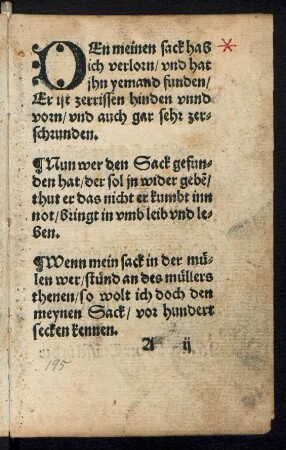 DEn meinen sack hab
ich verlorn/ vnd hat
jhn yemand funden/
Er ist zerrissen hinden vnnd
vorn/ vnd auch gar sehr zer-
schrunden.
¶Nun wer den Sack gefun-
den hat/ der sol jn wider gebẽ/
thut er das nicht er kumbt inn
not/ bringt in vmb leib vnd le-
ben.
¶Wenn mein sack in der mü-
len wer/ stünd an des müllers
thenen/ so wolt ich doch den
meynen Sack/ vor hundert
secken kennen.
A ij
195